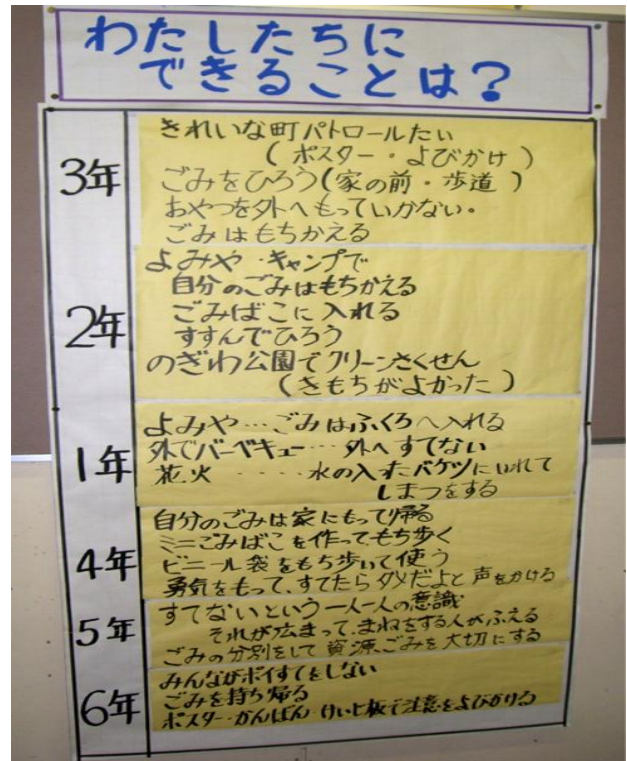 わたしたちに
できることは？
3年
きれいな町パトロールたい
（ポスター・よびかけ）
ごみをひろう（家の前・歩道）
おやつを外へもっていかない。
ごみはもちかえる
2年
よみや・キャンプで
自分のごみはもちかえる
ごみばこに入れる
すすんでひろう
のぎわ公園でクリーンさくせん
（きもちがよかった）
1年
よみや…ごみはふくろへ入れる
外でバーベキュー…外へすてない
花火……水の入ったバケツにいれて
しまつをする
4年
自分のごみは家にもって帰る
ミニごみばこを作ってもち歩く
ビニール袋をもち歩いて使う
勇気をもって、すてたらダメだよと声をかける
5年
すてないという一人一人の意識
それが広まって、まねをする人がふえる
ごみの分別をして資源ごみを大切にする
6年
みんながポイすてをしない
ごみを持ち帰る
ポスター・かんばん けいじ板で注意をよびかける